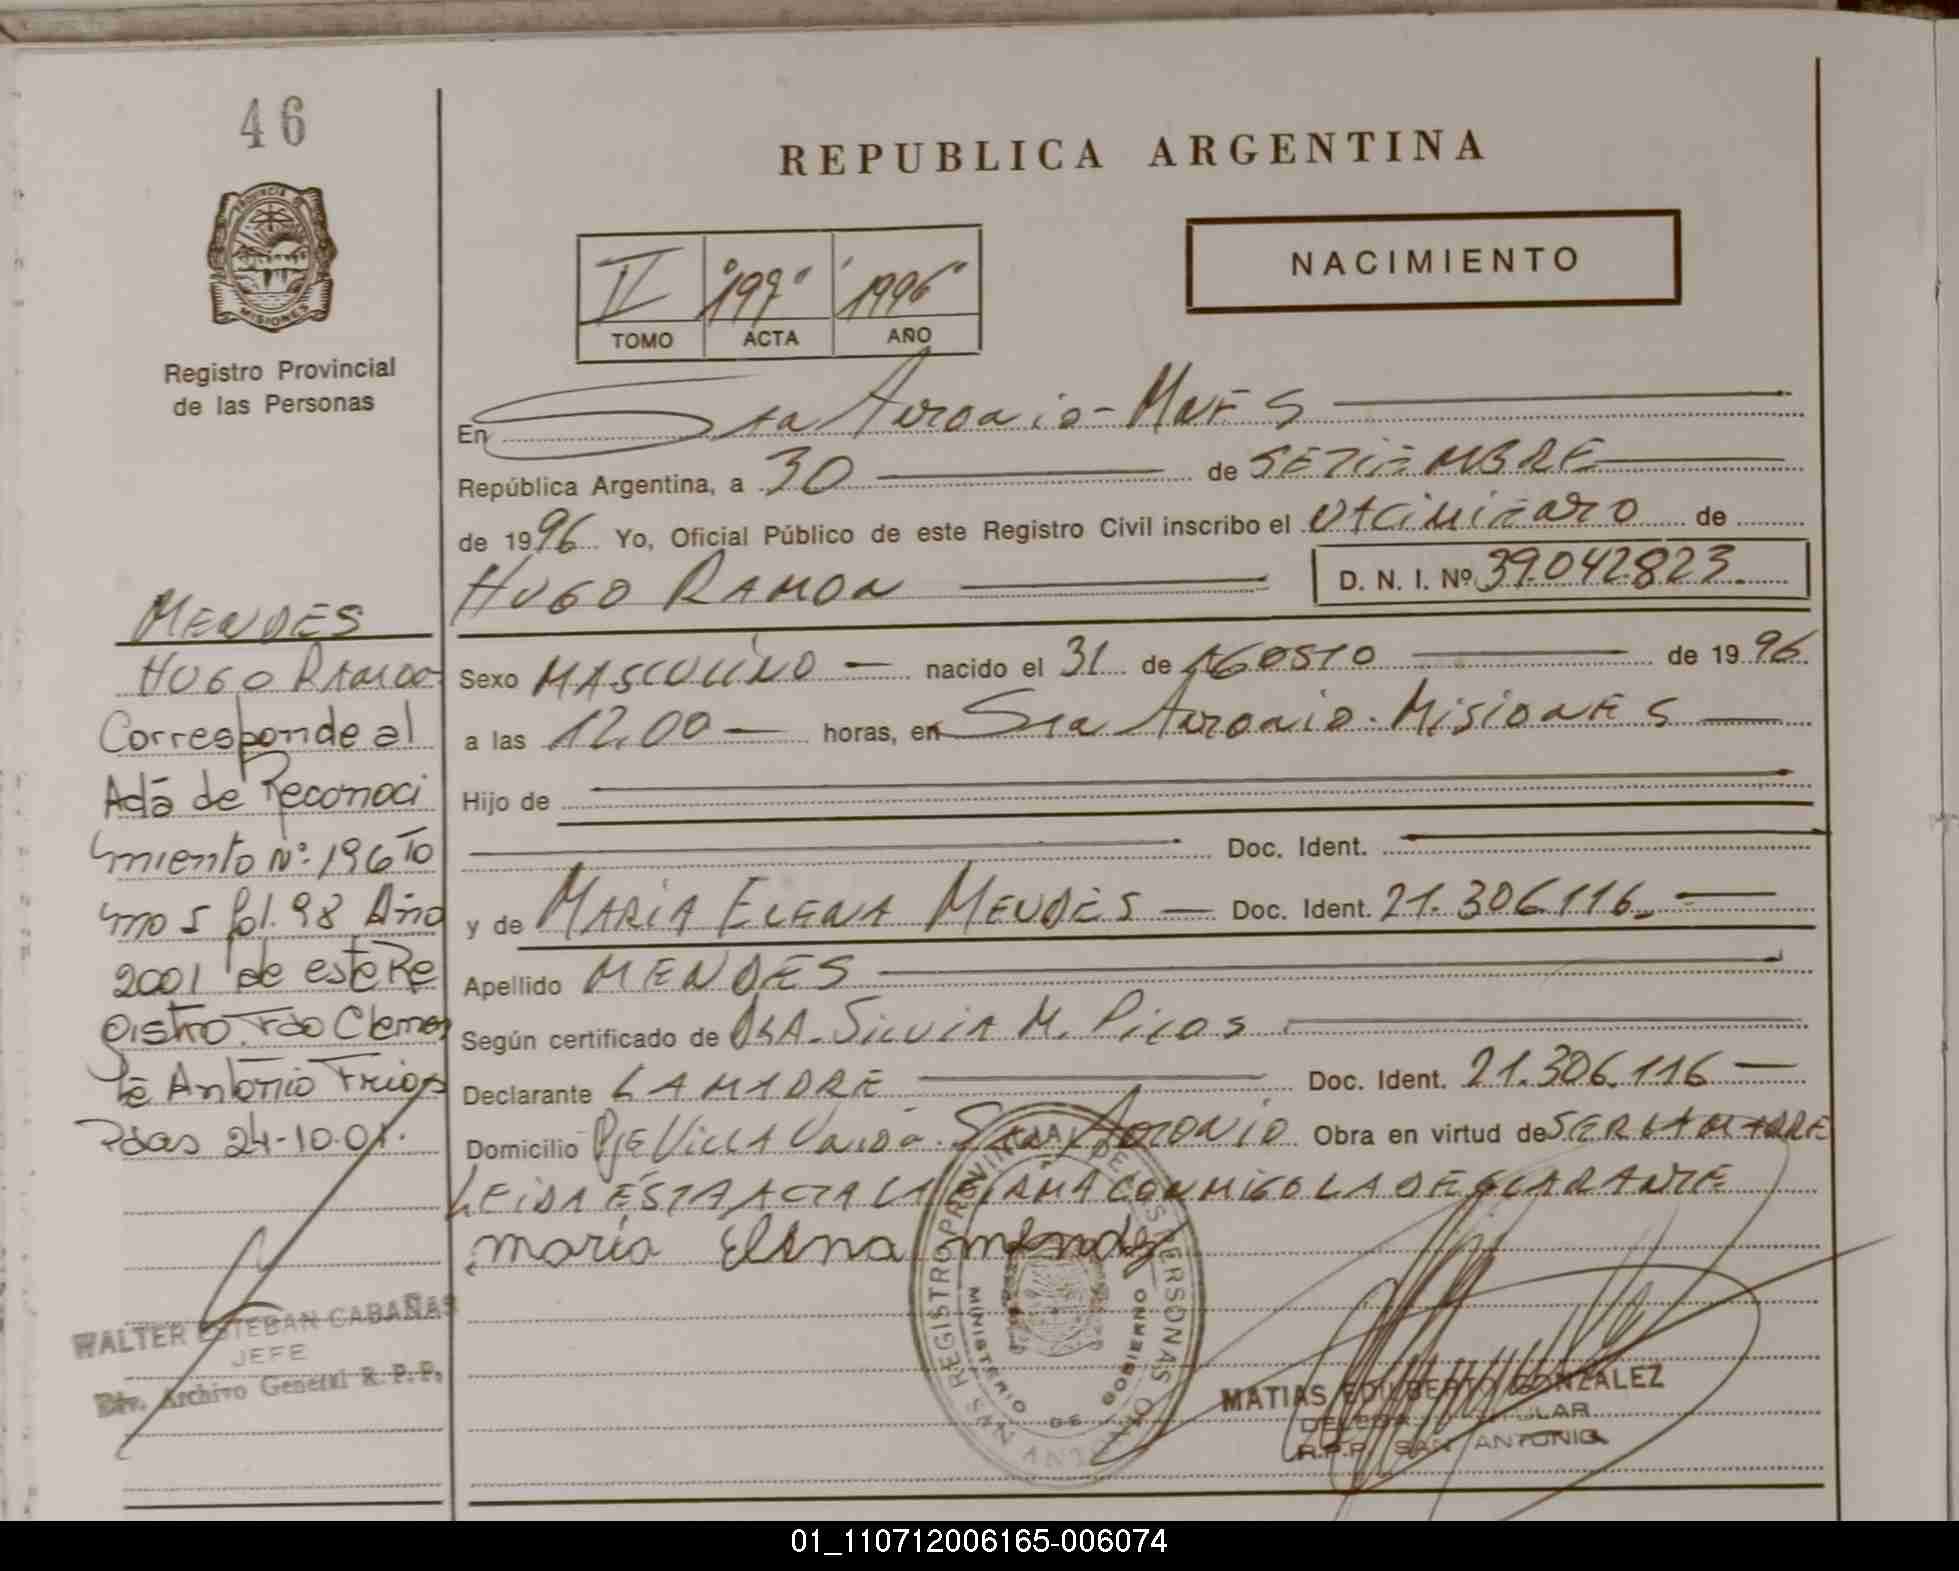 46
REPUBLICA ARGENTINA
PROVINCIA
MISIONES
Registro Provincial
de las Personas
V "197" "1996"
TOMO ACTA AÑO
NACIMIENTO
En San Antonio - Mnes
República Argentina, a 30 de SETIEMBRE
de 1996 Yo, Oficial Público de este Registro Civil inscribo el de
HUGO RAMON D. N. I. Nº 39.042.823.
Sexo MASCULINO nacido el 31 de AGOSTO de 1996.
a las 12,00 horas, en San Antonio. Misiones
Hijo de
Doc. Ident.
y de MARIA ELENA MENDES Doc. Ident. 21.306.116.
Apellido MENDES
Según certificado de DRA. SILVIA M.
Declarante LA MADRE Doc. Ident. 21.306.116
Domicilio Pje VILLA San ANTONIO Obra en virtud de SER LA MADRE
LEIDA ESTA ACTA LA FIRMA CONMIGO LA DECLARANTE
maria Elena mendez
MENDES
HUGO RAMON
Corresponde al
Actá de Reconoci
miento Nº: 196 To
mo 5 fol. 98 Año
2001 de este Re
gistro. Fdo Clemen
te Antonio Frios
Pdas 24-10-01.
WALTER ESTEBAN CABAÑAS
JEFE
Div. Archivo General R. P. P.
REGISTRO PROVINCIAL DE LAS PERSONAS
MINISTERIO DE GOBIERNO
SAN ANTONIO MNES
MATIAS EDILBERTO GONZALEZ
DELEGADO TITULAR
R.P.P. SAN ANTONIO
01_110712006165-006074